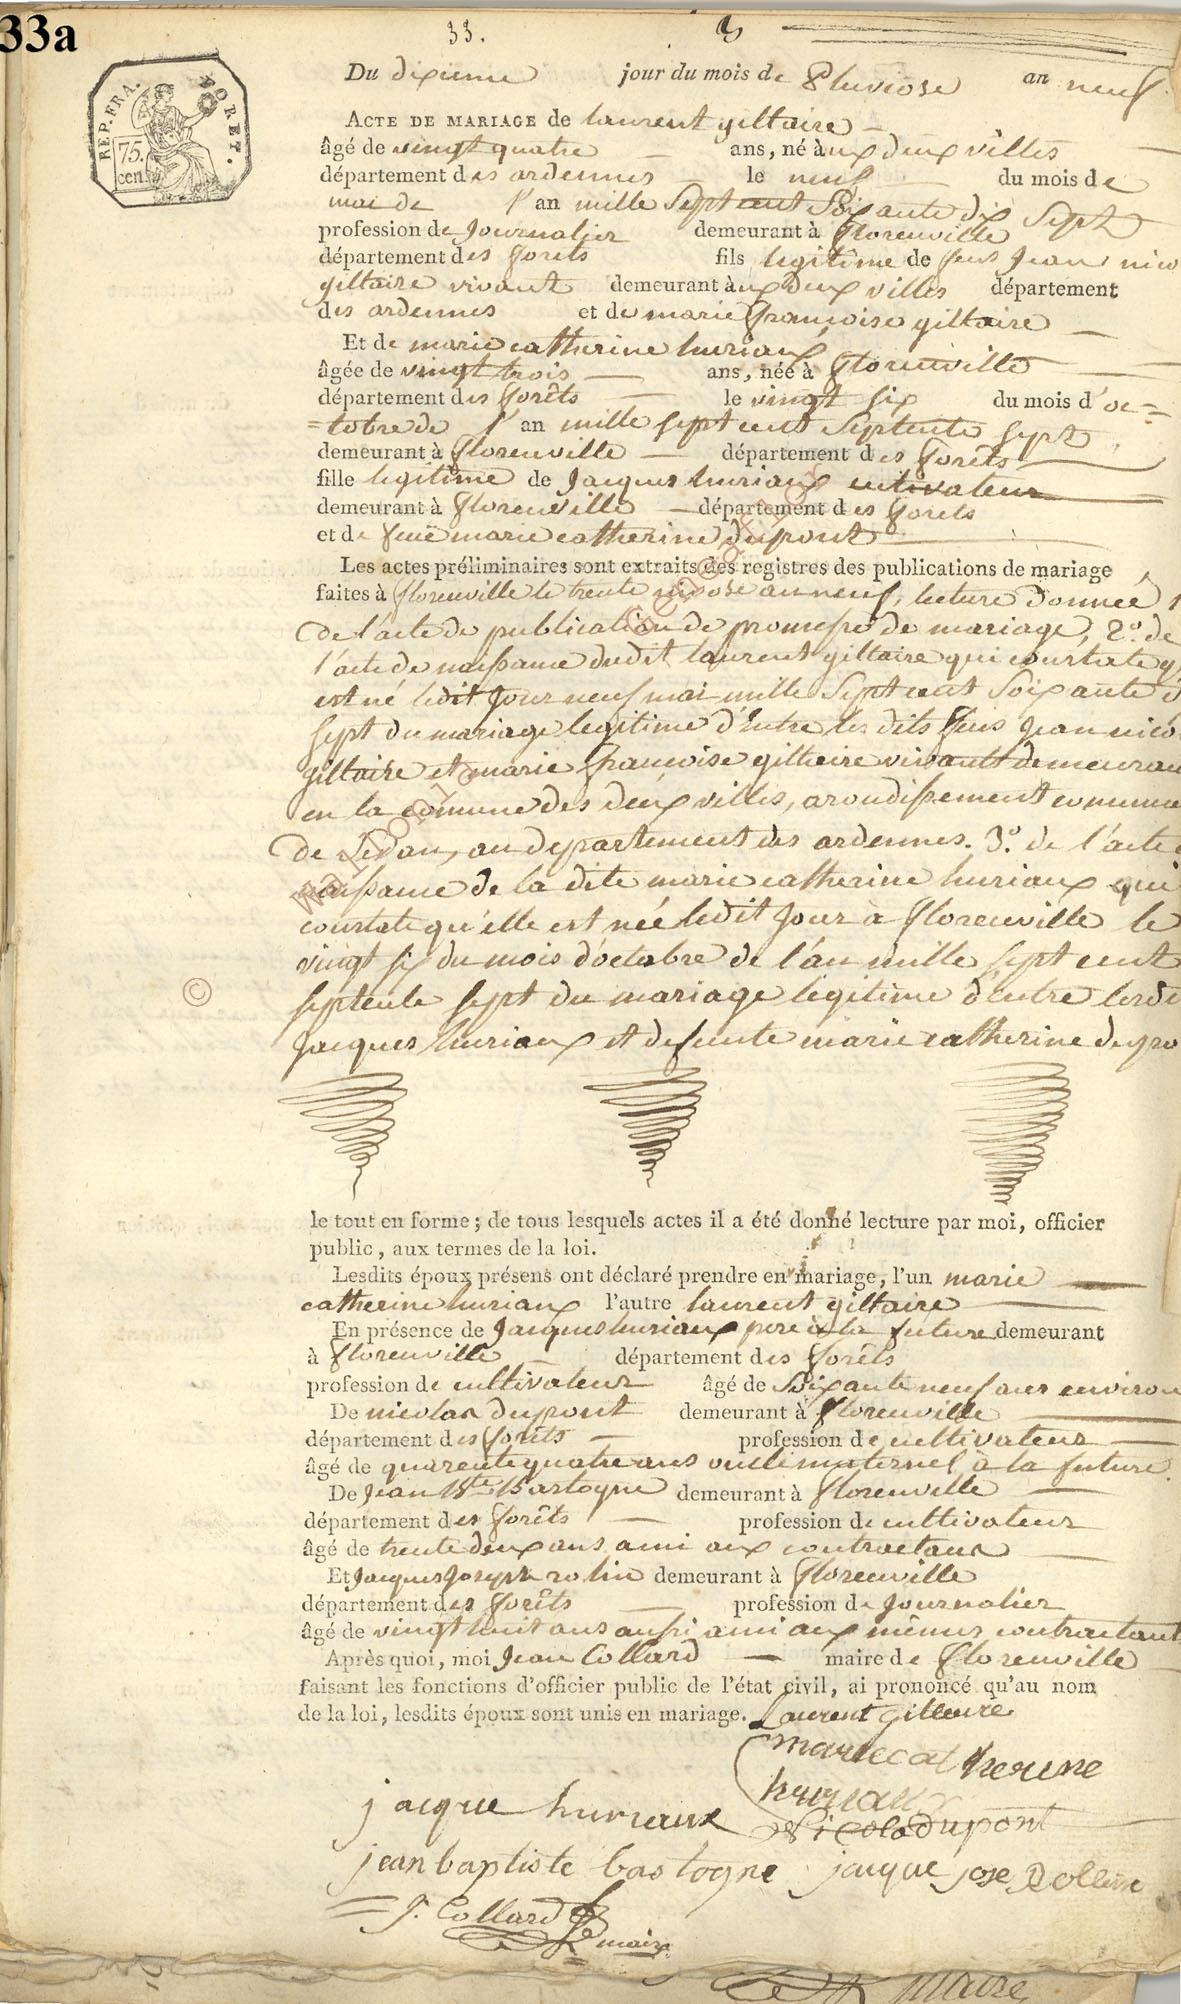 33a
33.
REP. FRA. FORET.
75.
cen.
Du dixieme jour du mois de Pluviose an neuf.
ACTE DE MARIAGE de laurent giltaire
âgé de vingt quatre ans, né aux deux villes
département des ardennes le neuf du mois de
mai de l'an mille Sept cent Soixante dix Sept
profession de Journalier demeurant à florenville
département des forets fils legitime de feus Jean nico
giltaire vivant demeurant aux deux villes département
des ardennes et de marie françoise giltaire
Et de marie catherine huriaux
âgée de vingt trois ans, née à florenville
département des forêts le vingt six du mois d'oc=
=tobre de l'an mille sept cent Septente sept
demeurant à florenville département des forêts
fille legitime de Jacques huriaux cultivateur
demeurant à florenville département des forets
et de feue marie catherine dupont
Les actes préliminaires sont extraits des registres des publications de mariage
faites à florenville le trente nivose an neuf, lecture donnée 1
de l'acte de publication de promesse de mariage, 2.º de
l'acte de naissance dudit laurent giltaire qui constate q
est né ledit Jour neuf mai mille Sept cent Soixante
sept du mariage legitime d'Entre les dits feus Jean nico
giltaire et marie françoise giltaire vivants demeuran
en la comune des deux villes, arondissement commun
de Sedan, au departement des ardennes. 3.º de l'acte
naissance de la dite marie catherine huriaux qui
constate qu'elle est née ledit Jour à florenville le
vingt six du mois d'octobre de l'an mille sept cent
septente sept du mariage legitime d'entre
Jacques huriaux et defunte marie catherine
©
le tout en forme; de tous lesquels actes il a été donné lecture par moi, officier
public, aux termes de la loi.
Lesdits époux présens ont déclaré prendre en mariage, l'un marie
catherine huriaux l'autre laurent giltaire
En présence de Jacques huriaux pere à la future demeurant
à florenville département des forêts
profession de cultivateur âgé de Soixante neuf ans environ
De nicolas dupont demeurant à florenville
département des forêts profession de cultivateur
âgé de quarente quatre ans oncle maternel à la future.
De Jean Bte Bastogne demeurant à florenville
département des forêts profession de cultivateur
âgé de trente deux ans ami aux contractans
Et Jacques Joseph rolin demeurant à florenville
département des forêts profession de Journalier
âgé de vingt huit ans aussi ami aux mêmes contractant
Après quoi, moi Jean Collard maire de florenville
faisant les fonctions d'officier public de l'état civil, ai prononcé qu'au nom
de la loi, lesdits époux sont unis en mariage. Laurent gilteire
marie cat herine
huriaux
jacque huriaux Nicola dupont
jean baptiste bastogne jacque jose Rollin
J. Collard
maire
maire